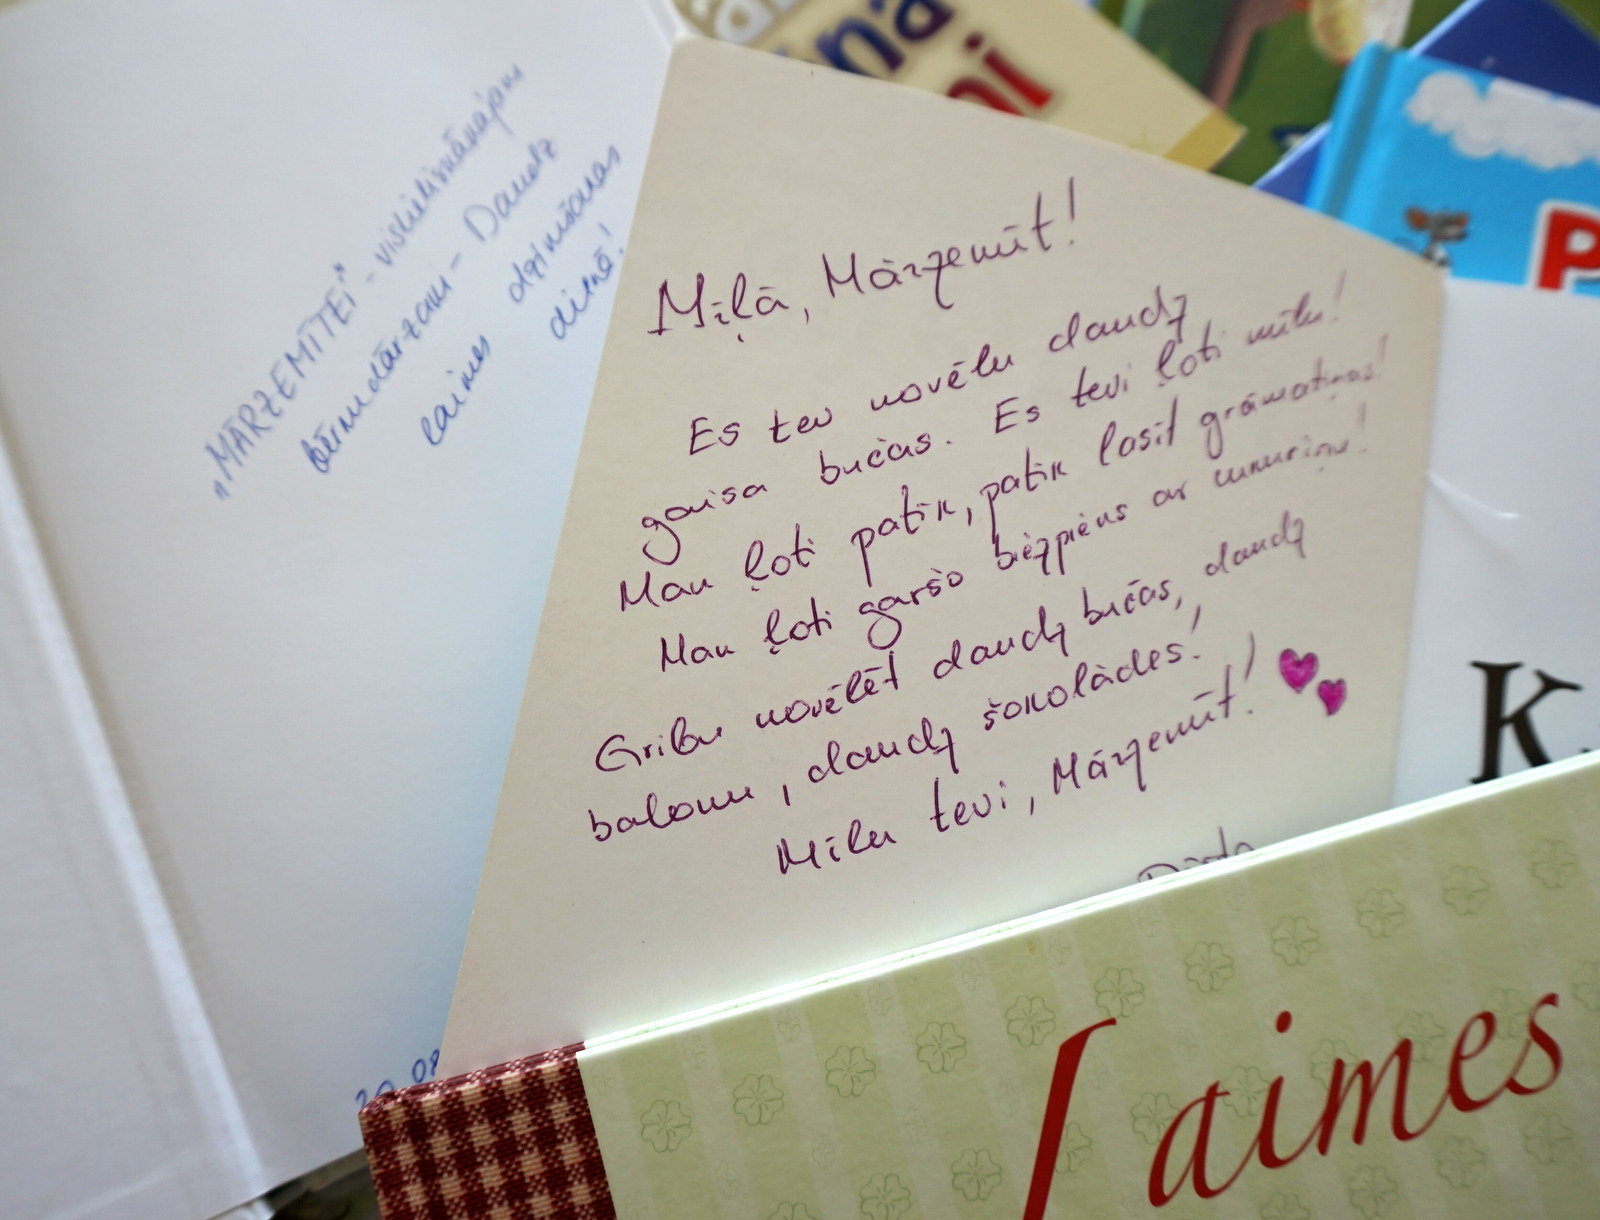 „MĀRZEMĪTEI" - vislieliskākajam
bērnudārzam - Daudz
laimes dzimšanas
dienā!
20.08
Mīļā, Mārzemīt!
Es tev novēlu daudz
gaisa bučas. Es tevi ļoti mīlu!
Man ļoti patīk, patīk lasīt grāmatiņas!
Man ļoti garšo biezpiens ar cukuriņu!
Gribu novēlēt daudz bučas, daudz
balonu, daudz šokolādes!
Mīlu tevi, Mārzemīt!
K.
P
Laimes